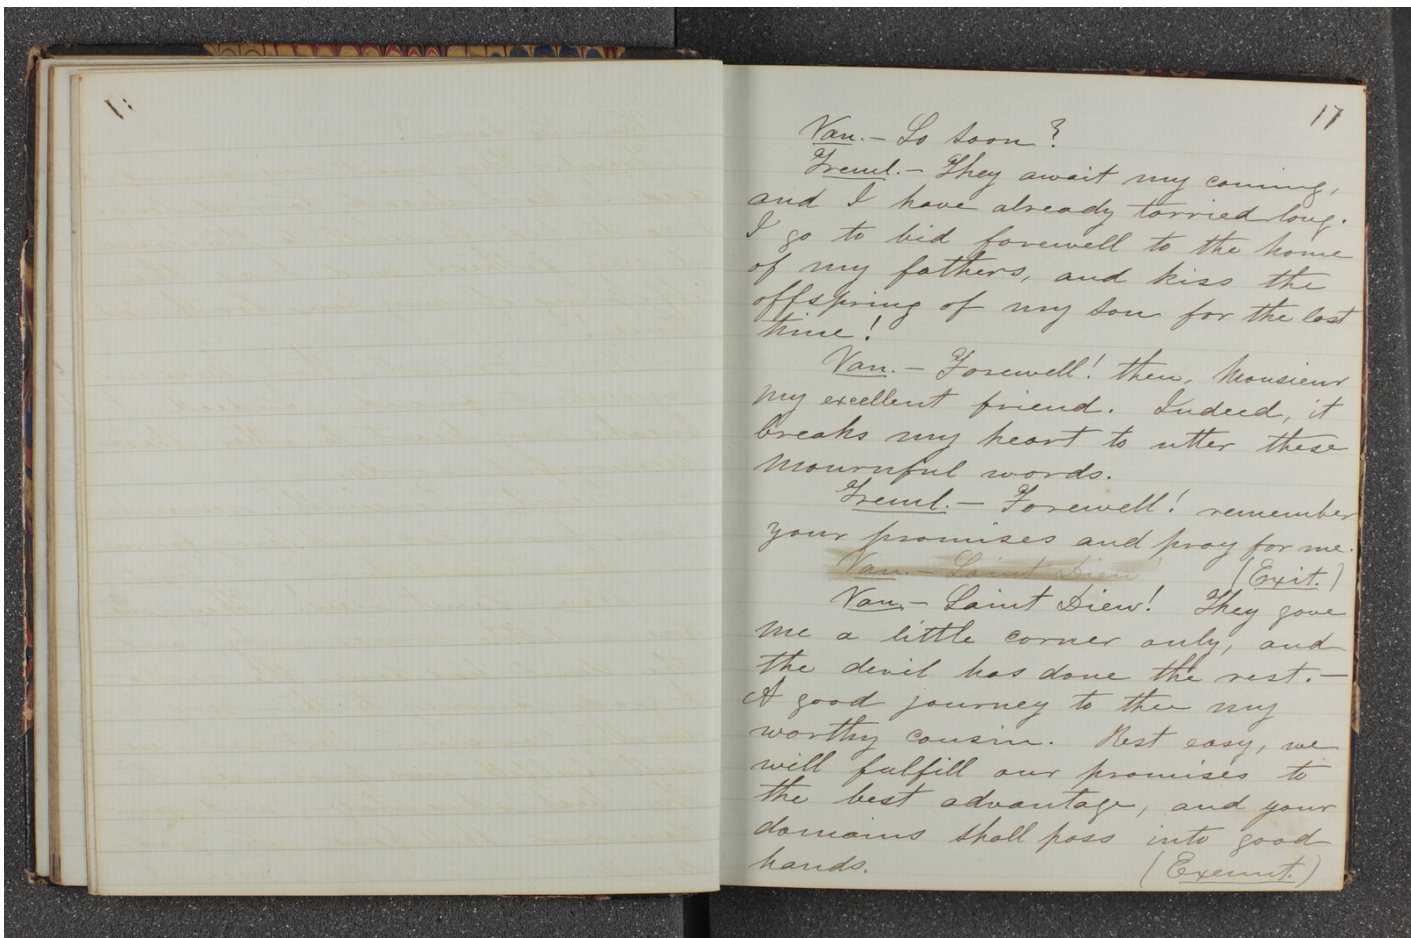 17
Van. — So soon?
Treml. — They await my coming,
and I have already tarried long.
I go to bid farewell to the home
of my fathers, and kiss the
offspring of my son for the last
time!
Van. — Farewell! then, Monsieur
my excellent friend. Indeed, it
breaks my heart to utter these
mournful words.
Treml. — Farewell! remember
your promises and pray for me.
Van. — Saint Dieu (Exit.)
Van. — Saint Dieu! They gave
me a little corner only, and
the devil has done the rest. —
A good journey to thee my
worthy cousin. Rest easy, we
will fulfill our promises to
the best advantage, and your
domains shall pass into good
hands. (Exeunt.)